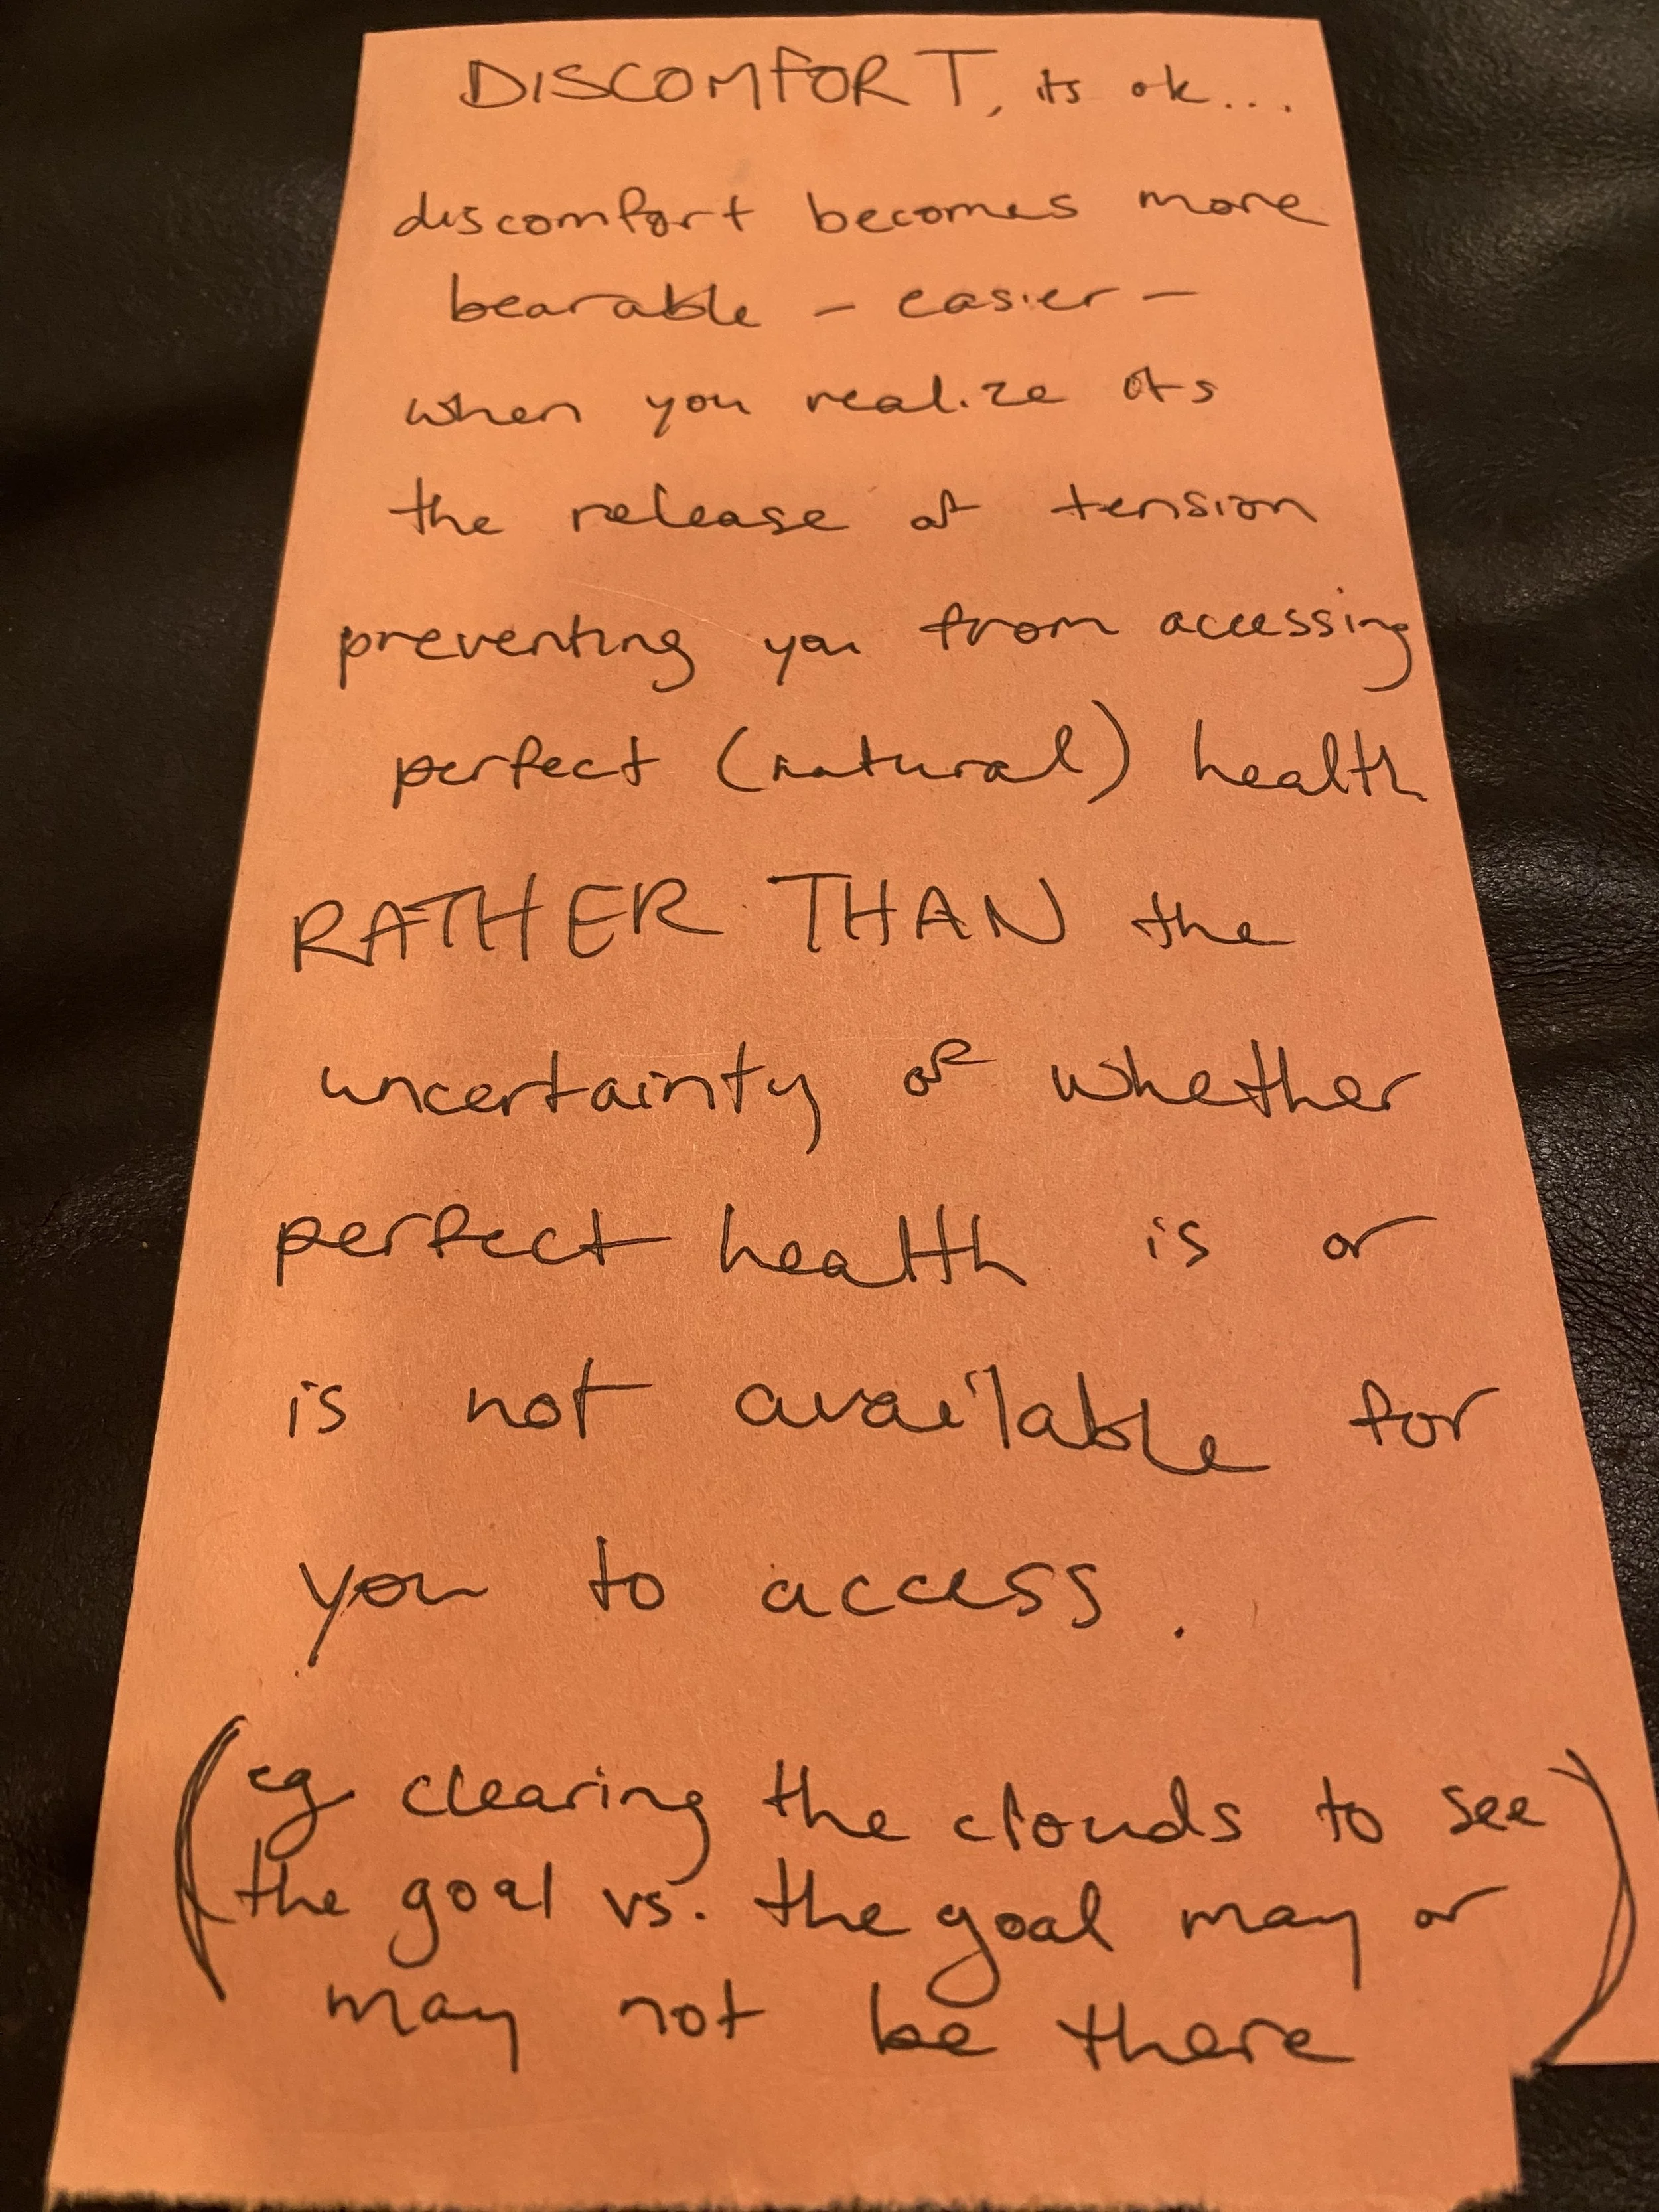 DISCOMFORT, its ok...
discomfort becomes more
bearable - easier -
when you realize its
the release of tension
preventing you from accessing
perfect (natural) health
RATHER THAN the
uncertainty of whether
perfect health is or
is not available for
you to access.
(eg clearing the clouds to see
the goal vs. the goal may or
may not be there)